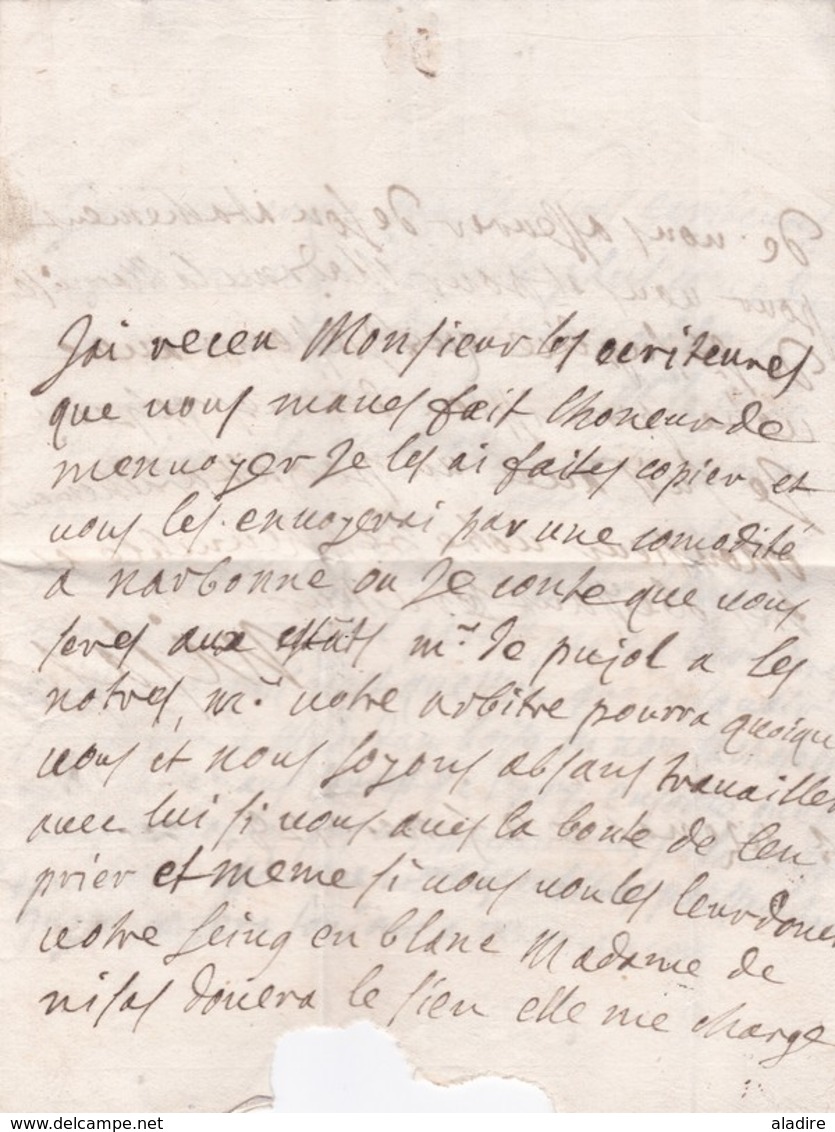 Jai receu Monsieur les ecriteures
que vous maues fait lhoneur de
menuoyer Je les ai faites copier et
vous les enuoyerai par une comodité
a narbonne ou Je conte que vous
seres aux estats mr. de pujol a les
notres, mr. notre arbitre pourra quoique
vous et nous soyons absans trauailler
auec lui si vous aués la bonte de len
prier et meme si vous voules leur doner
votre seing en blanc Madame de
nisas donera le sien elle me charge
de vous asseurer de son atachement
delcampe.net
aladire